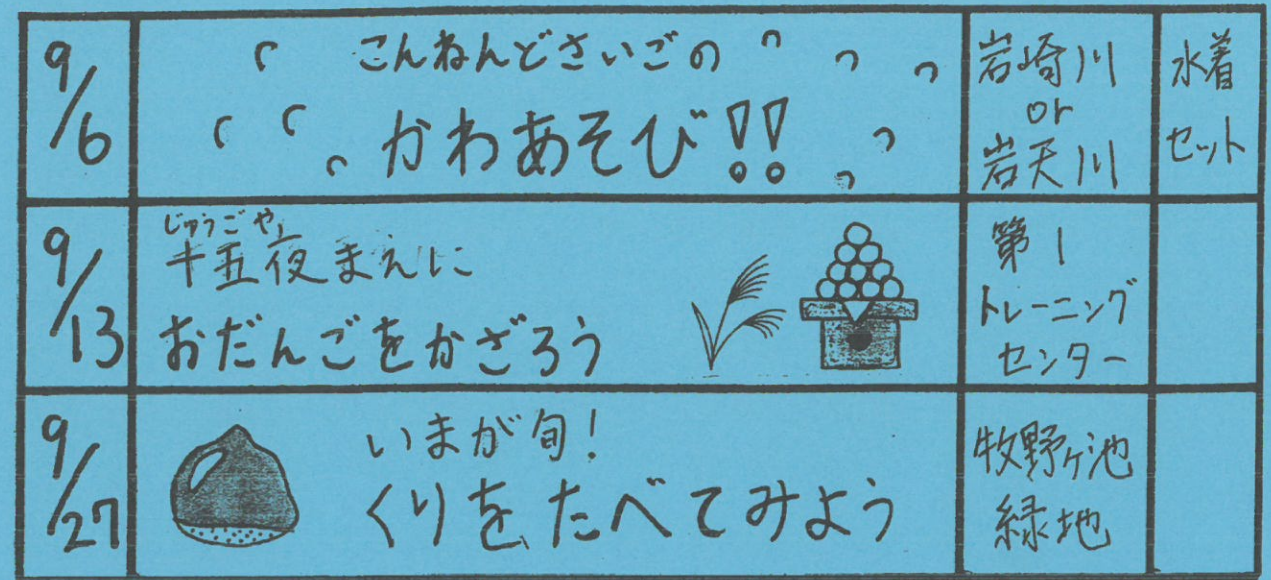 9/6
こんねんどさいごの
かわあそび!!
岩崎川
or
岩天川
水着
セット
9/13
じゅうごや
十五夜まえに
おだんごをかざろう
第1
トレーニング
センター
9/27
いまが旬!
くりをたべてみよう
牧野ヶ池
緑地